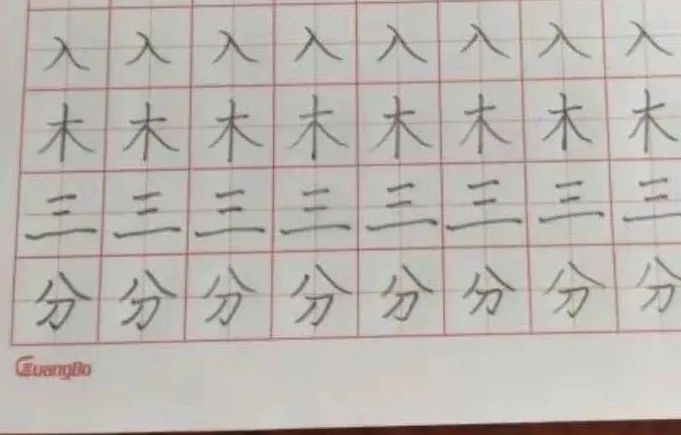 入入入入入入入入
木木木木木木木木
三三三三三三三三
分分分分分分分分
GuangBo